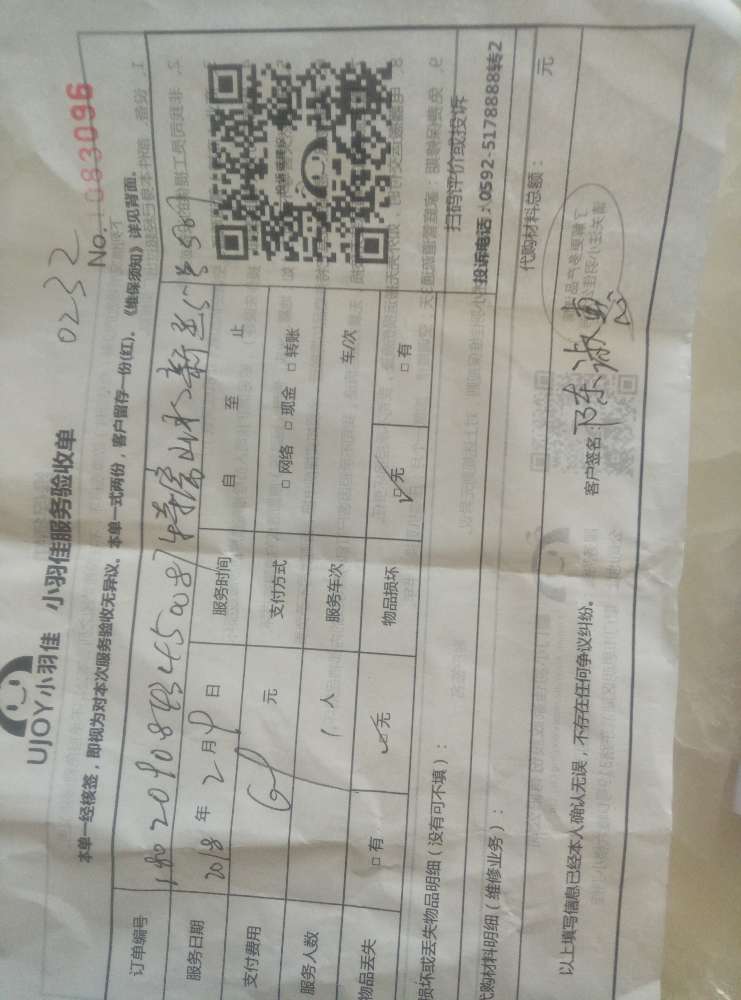 UJOY小羽佳 小羽佳服务验收单
0232
No. 10833096
本单一经核签，即视为对本次服务验收无异议。本单一式两份，客户留存一份(红)。《维保须知》详见背面。
订单编号
服务日期 2018 年 2 月 9 日 服务时间 自 至 止
支付费用 元 支付方式 □ 网络 □ 现金 □ 转账
服务人数 1 人 服务车次 车/次
物品丢失 □ 有 ☑ 无 物品损坏 ☑ 无 □ 有
扫码评价或投诉
投诉电话：0592-5178888转2
损坏或丢失物品明细（没有可不填）：
代购材料明细（维修业务）： 代购材料总额： 元
以上填写信息已经本人确认无误，不存在任何争议纠纷。 客户签名：陈淑惠